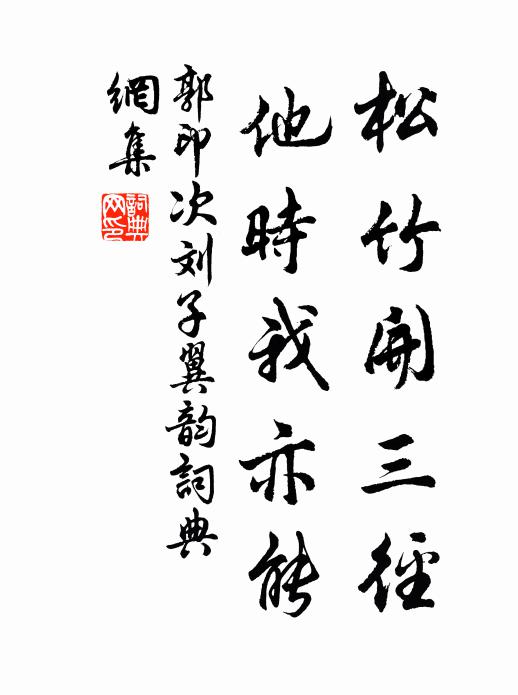 松竹開三徑
他時我亦能
郭印次刘子翼韵詞典
網集
詞典網印